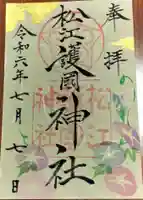 奉拝
松江護國神社
令和六年七月七日
松江
神社